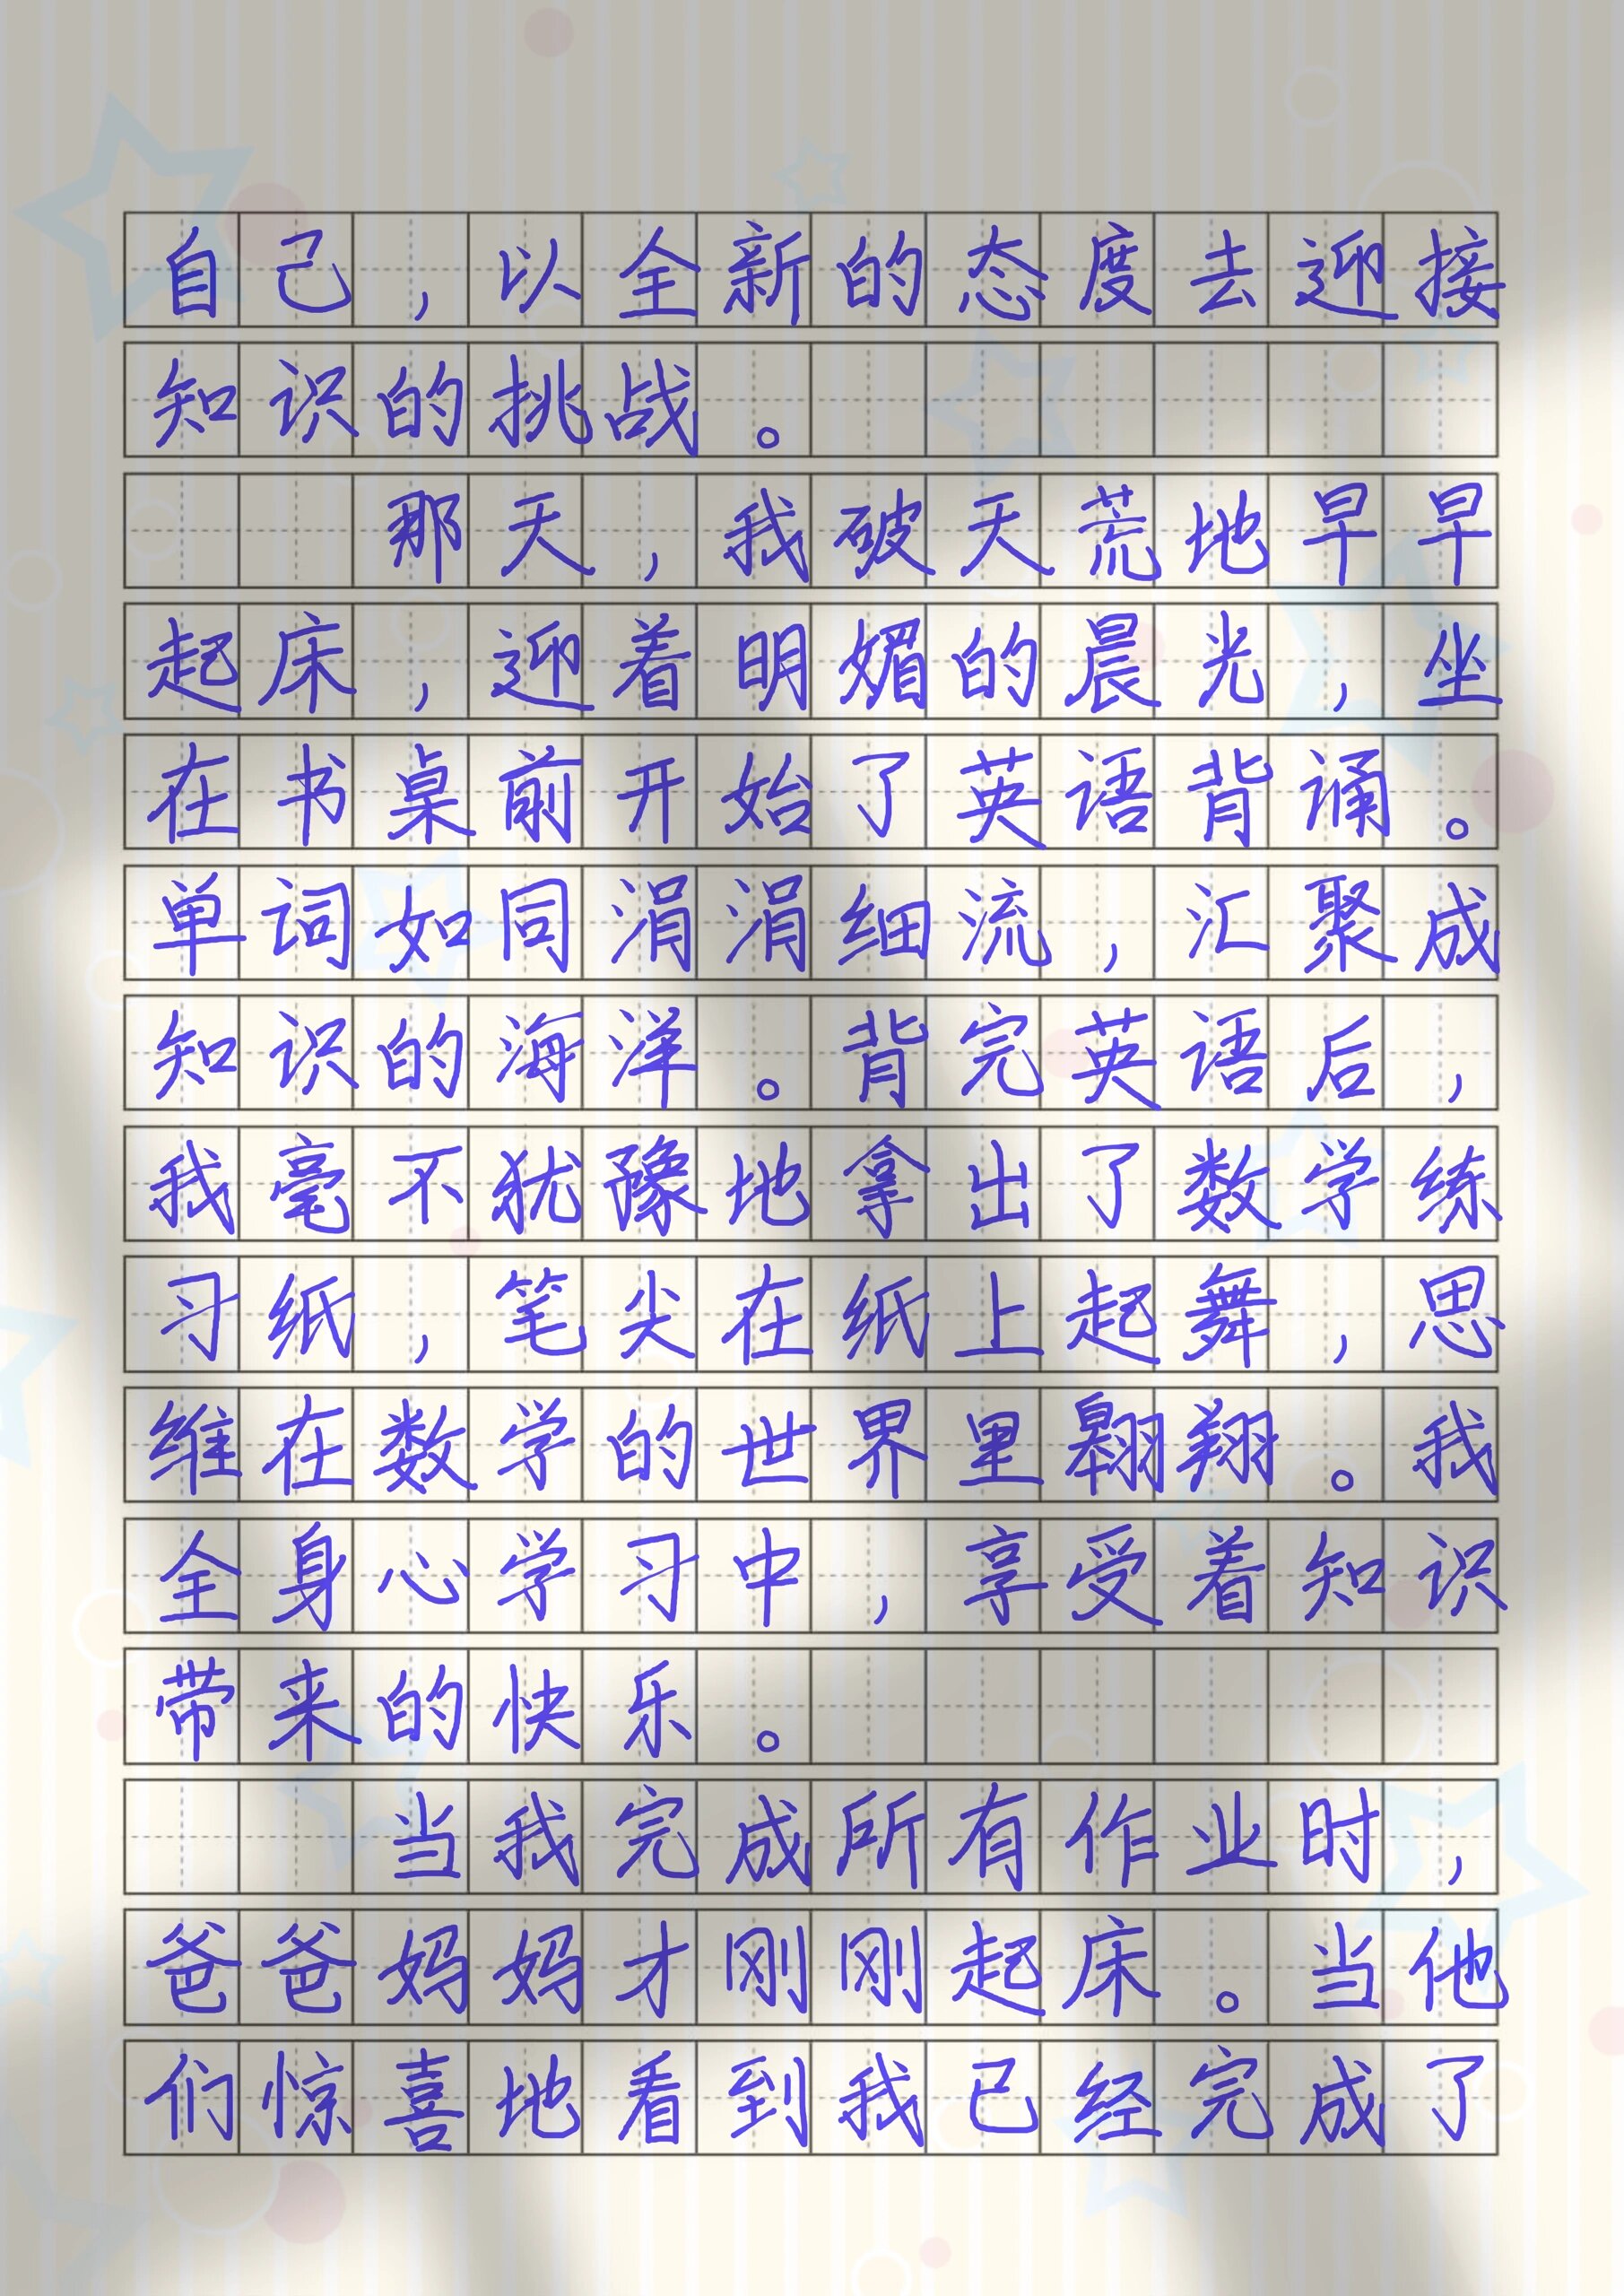 自己，以全新的态度去迎接
知识的挑战。
那天，我破天荒地早早
起床，迎着明媚的晨光，坐
在书桌前开始了英语背诵。
单词如同涓涓细流，汇聚成
知识的海洋。背完英语后，
我毫不犹豫地拿出了数学练
习纸，笔尖在纸上起舞，思
维在数学的世界里翱翔。我
全身心学习中，享受着知识
带来的快乐。
当我完成所有作业时，
爸爸妈妈才刚刚起床。当他
们惊喜地看到我已经完成了